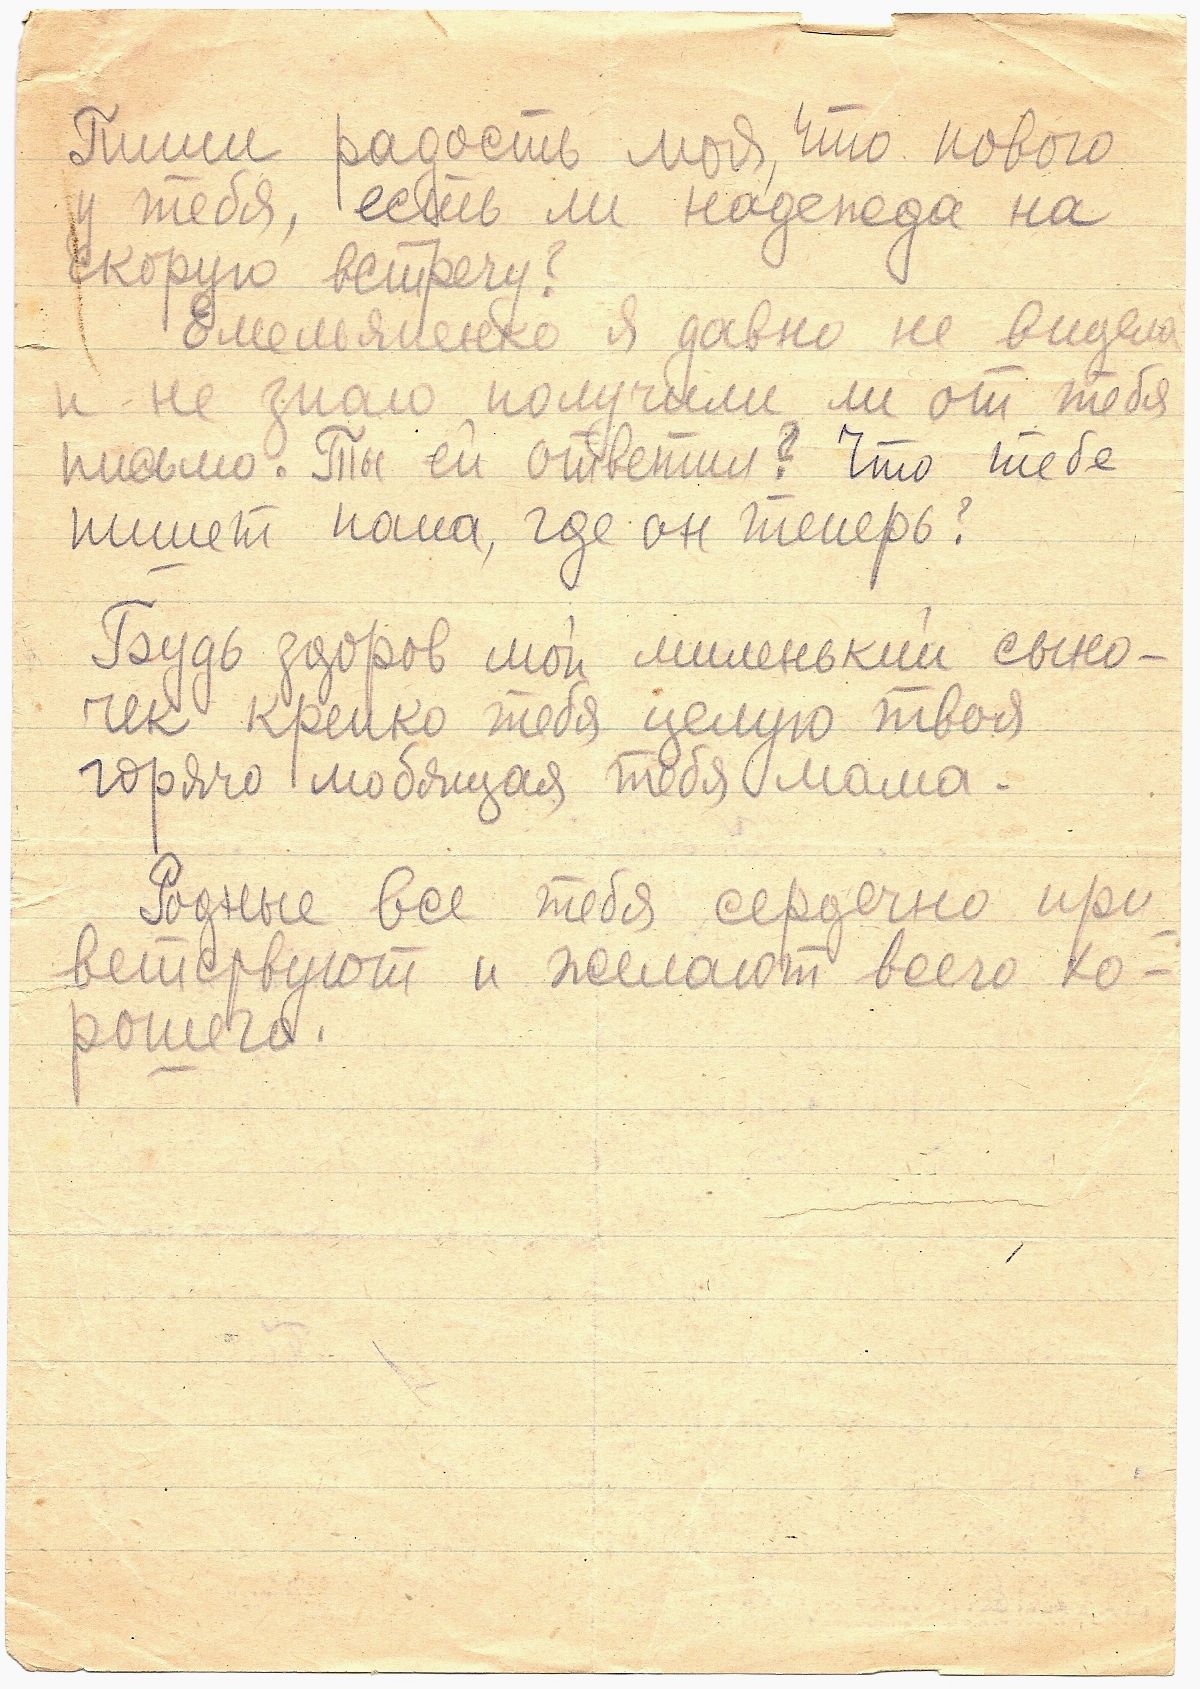 Пиши радость моя, что нового
у тебя, есть ли надежда на
скорую встречу?
Емельяненко я давно не видела
и не знаю получили ли от тебя
письмо. Ты ей ответил? Что тебе
пишет папа, где он теперь?
Будь здоров мой миленький сыно-
чек крепко тебя целую твоя
горячо любящая тебя мама.
Родные все тебя сердечно при-
ветствуют и желают всего хо-
рошего.